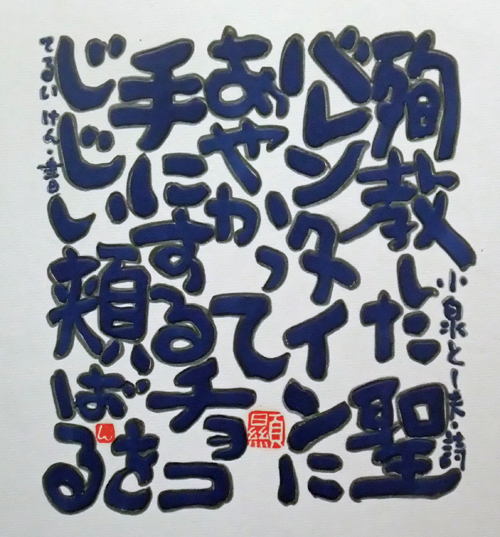 殉教した聖
バレンタインに
あやかって
手にするチョコを
じじい頬ばる
小泉とし夫・詩
てるい けん・書
顯
ん